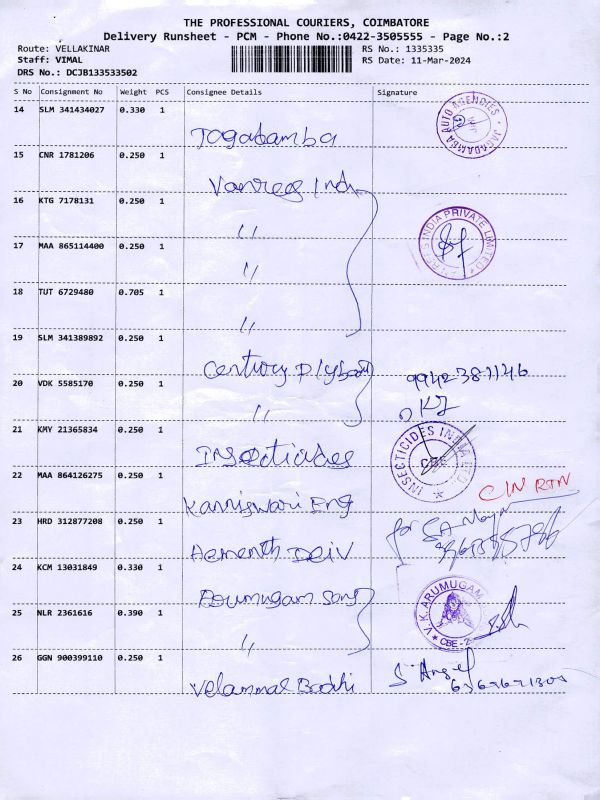 THE PROFESSIONAL COURIERS, COIMBATORE
Delivery Runsheet - PCM - Phone No.:0422-3505555 - Page No.:2
Route: VELLAKINAR
RS No.: 1335335
Staff: VIMAL
RS Date: 11-Mar-2024
DRS No.: DCJB133533502
S No Consignment No Weight PCS Consignee Details Signature
14 SLM 341434027 0.330 1
Jagadamba
JAGADAMBA AUTO AGENCIES
15 CNR 1781206 0.250 1
Ind
16 KTG 7178131 0.250 1
"
INDIA PRIVATE LIMITED
17 MAA 865114400 0.250 1
"
18 TUT 6729480 0.705 1
"
19 SLM 341389892 0.250 1
Century Plyboard
9942381146
20 VDK 5585170 0.250 1
"
21 KMY 21365834 0.250 1
Insecticides
INSECTICIDES INDIA LTD
CBE
22 MAA 864126275 0.250 1
Kanniswari Eng
C/N RTN
23 HRD 312877208 0.250 1
Hementh
for
24 KCM 13031849 0.330 1
Aoumugam Sons
V.K. ARUMUGAM
CBE-2
25 NLR 2361616 0.390 1
"
26 GGN 900399110 0.250 1
Velammal Bodhi